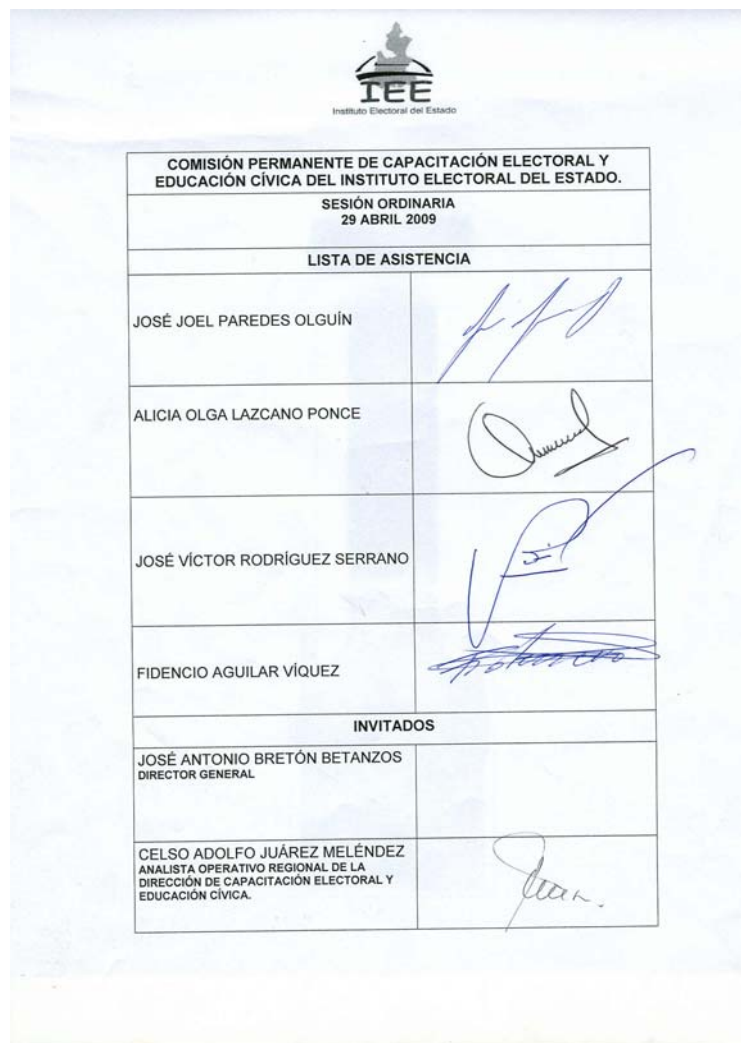 IEE
Instituto Electoral del Estado
COMISIÓN PERMANENTE DE CAPACITACIÓN ELECTORAL Y
EDUCACIÓN CÍVICA DEL INSTITUTO ELECTORAL DEL ESTADO.
SESIÓN ORDINARIA
29 ABRIL 2009
LISTA DE ASISTENCIA
JOSÉ JOEL PAREDES OLGUÍN
ALICIA OLGA LAZCANO PONCE
JOSÉ VÍCTOR RODRÍGUEZ SERRANO
FIDENCIO AGUILAR VÍQUEZ
INVITADOS
JOSÉ ANTONIO BRETÓN BETANZOS
DIRECTOR GENERAL
CELSO ADOLFO JUÁREZ MELÉNDEZ
ANALISTA OPERATIVO REGIONAL DE LA
DIRECCIÓN DE CAPACITACIÓN ELECTORAL Y
EDUCACIÓN CÍVICA.